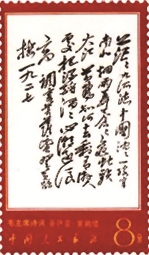 茫茫九派流中国沉沉一线穿
南北烟雨莽苍苍龟蛇锁
大江黄鹤知何去剩有游人
处把酒酹滔滔心潮逐浪
高
楼 一九二七
毛主席诗词 菩萨蛮 黄鹤楼
中国人民邮政 8分